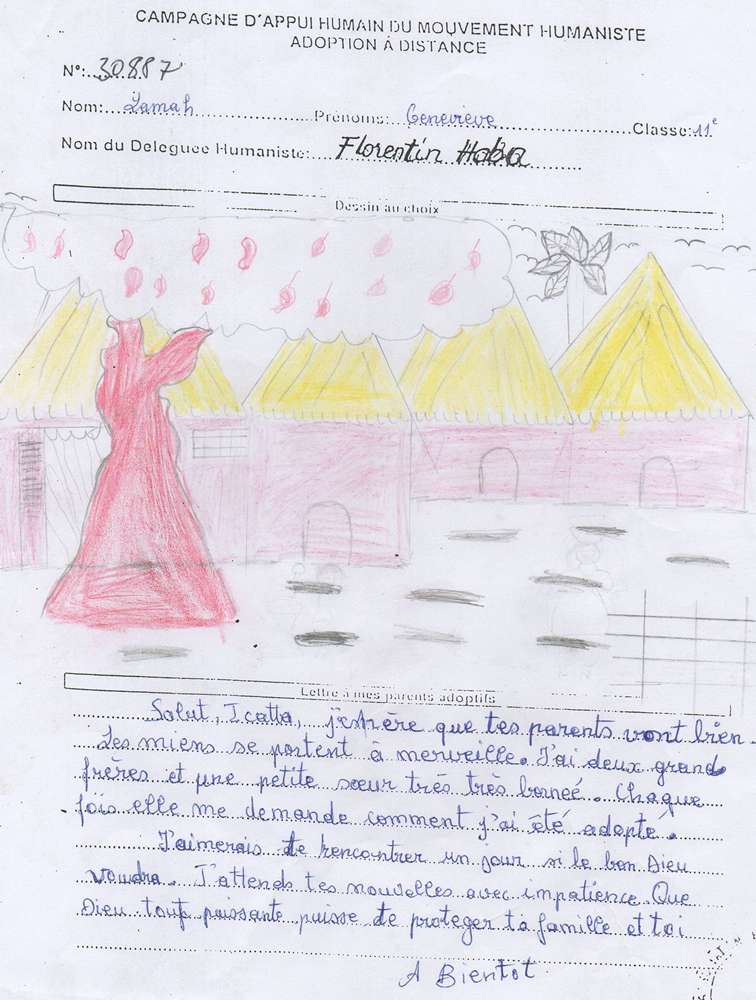 CAMPAGNE D'APPUI HUMAIN DU MOUVEMENT HUMANISTE
ADOPTION À DISTANCE
N°: 30.887
Nom: Lamah Prénoms: Geneviève Classe: 11e
Nom du Deleguée Humaniste: Florentin Haba
Dessin au choix
Lettre à mes parents adoptifs
Salut, Icatta, j'espère que tes parents vont bien.
Les miens se portent à merveille. J'ai deux grand
frères et une petite sœur très très borneé. Chaque
fois elle me demande comment j'ai été adopté.
J'aimerais te rencontrer un jour si le bon Dieu
voudra. J'attends tes nouvelles avec impatience Que
Dieu tout puissante puisse te proteger ta famille et toi
A Bientot